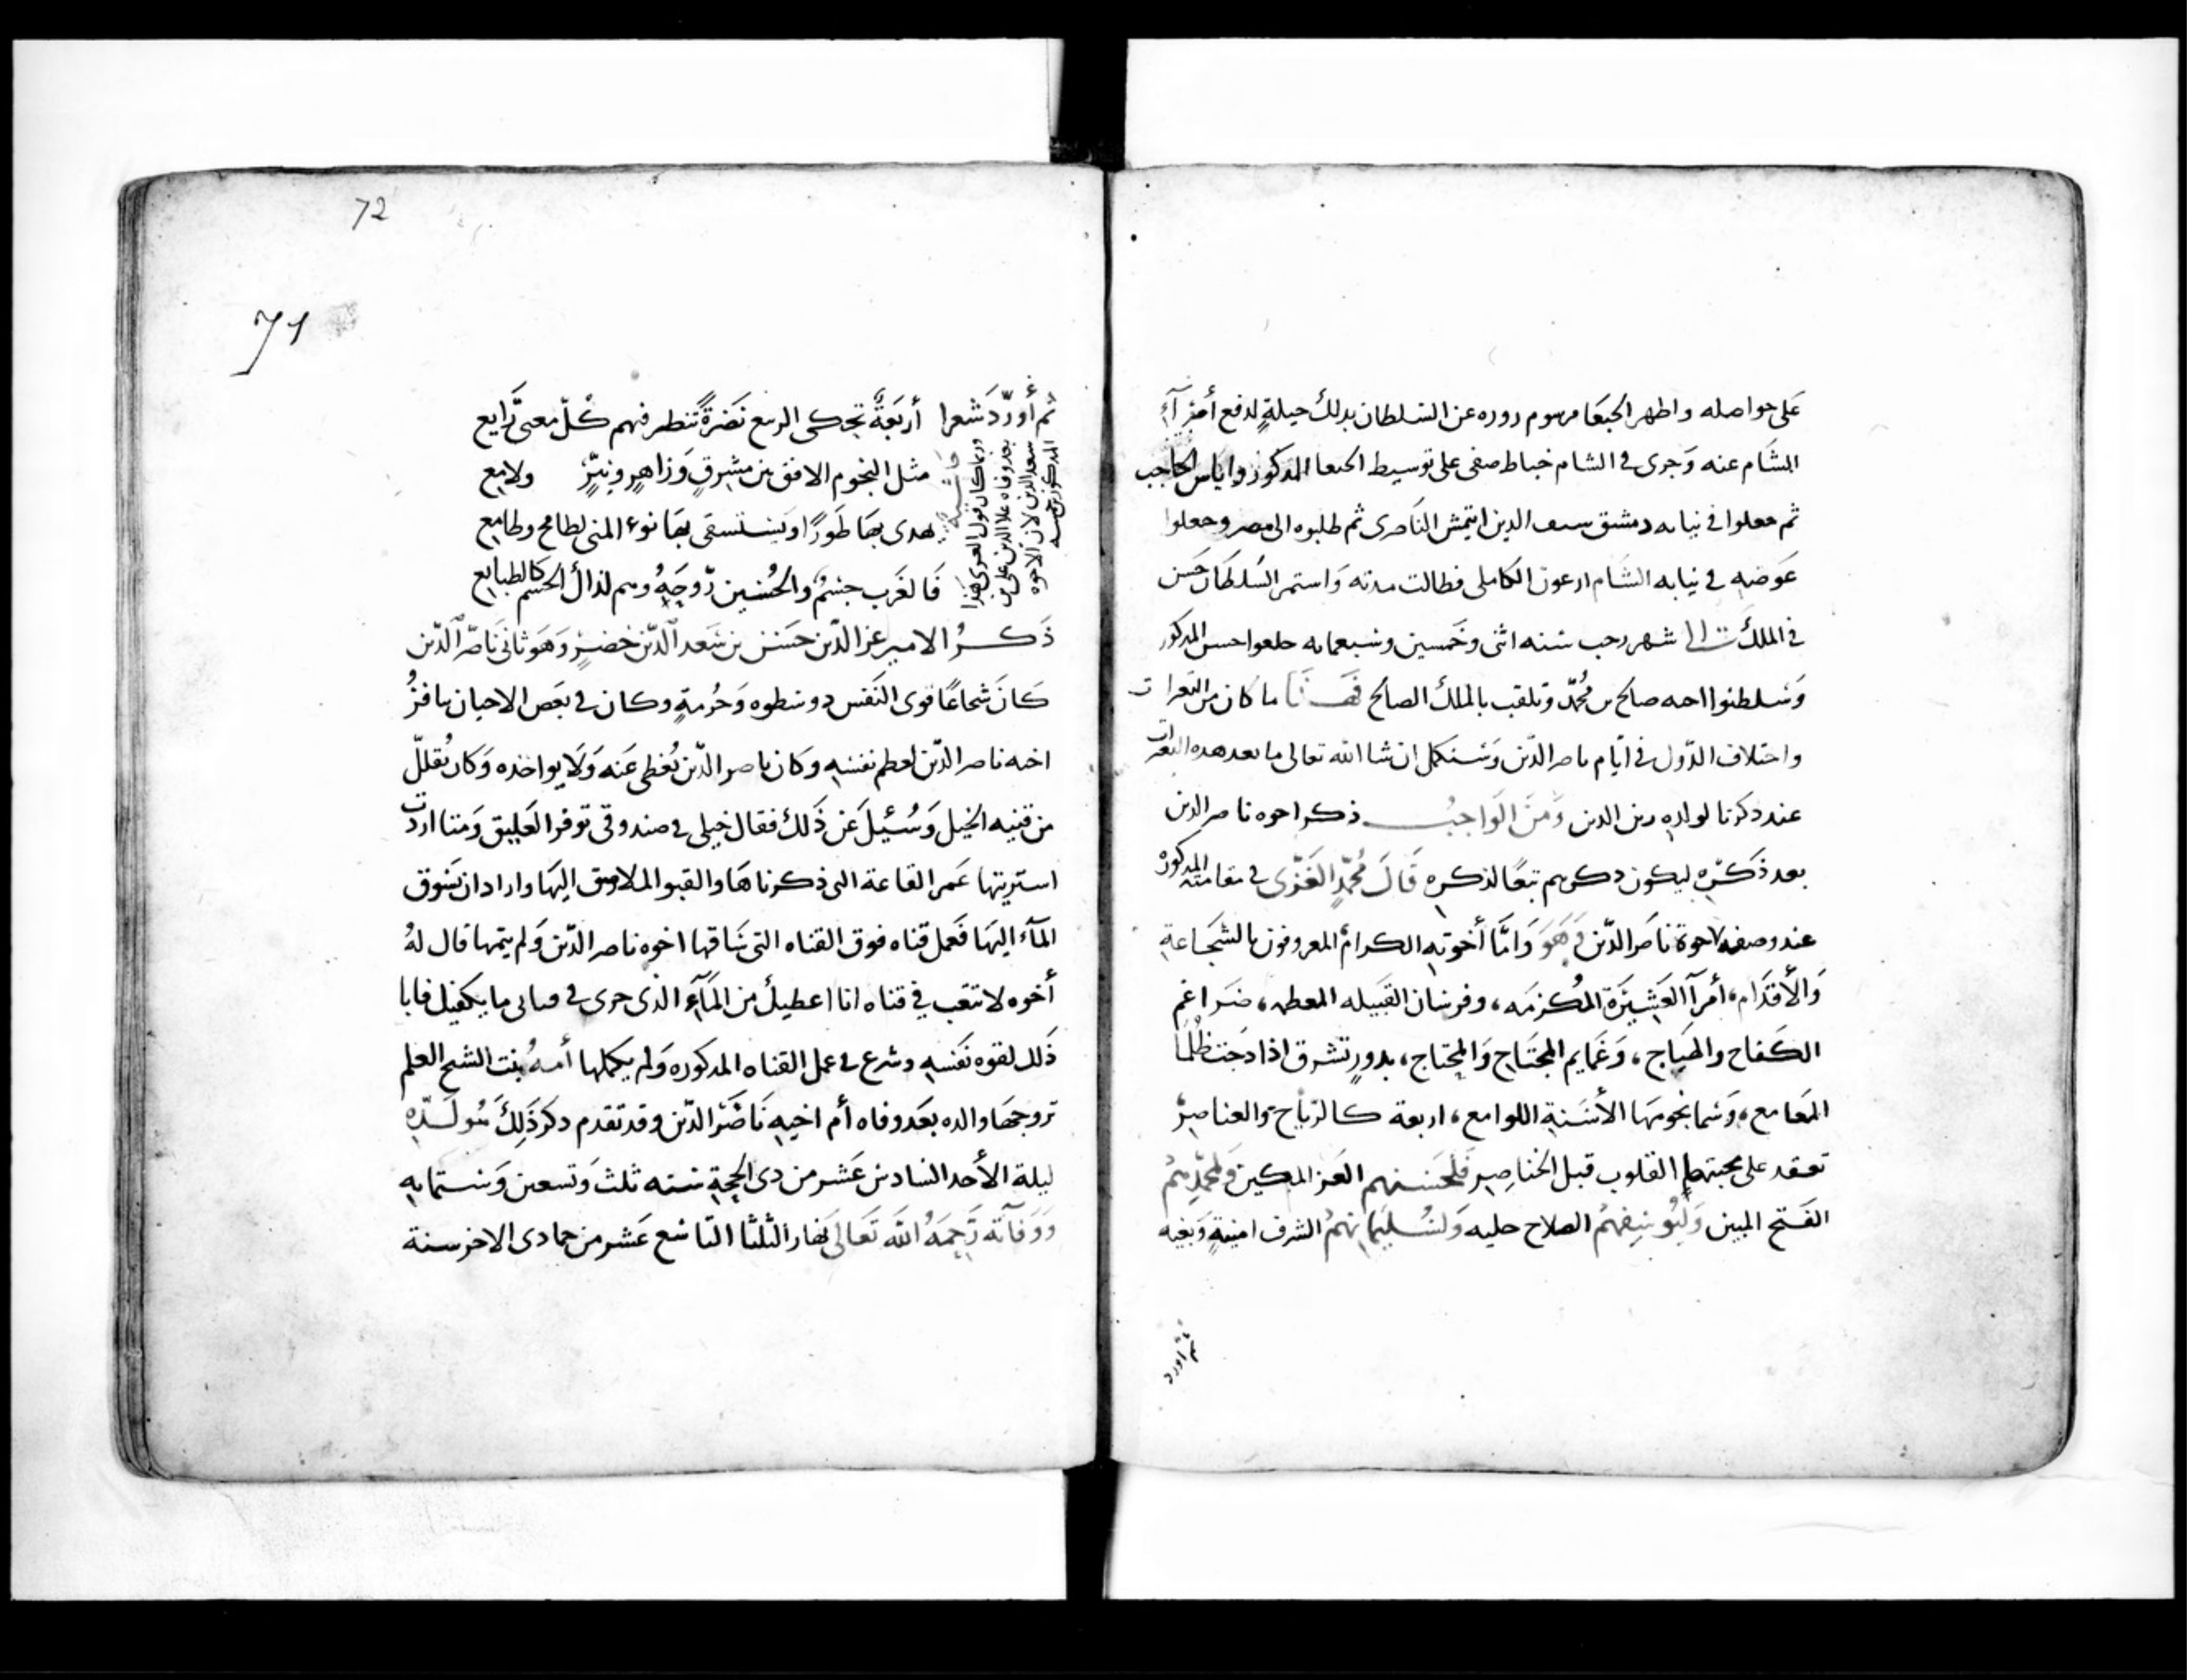 على حواصله واظهر الجبغا مرسوم روره عن السلطان بدلك حيلةٍ لدفع أمرآء
الشام عنه وَجرى في الشام خباط صفى على توسيط الحبعا المدكور واياس الحاجب
ثم جعلوا في نيابه دمشق سيف الدين ايتمش الناصرى ثم طلبوه الى مصر وجعلوا
عوضه في نيابه الشام ارعون الكاملى فطالت مدته وَاستمر السلطان حَسن
في الملك الى شهر رجب سنه اثنى وخمسين وسبعمايه خلعوا حسن المدكور
وَسلطنوا اخيه صالح بن محمّد وتلقب بالملك الصالح فهذا ما كان من التغيرات
واختلاف الدّول في ايّام ناصر الدّين وَسنكمل ان شا الله تعالى ما بعد هده التغيرات
عند دكرنا لولده زين الدين وَمنَ الوَاجبُ ذكر اخوه ناصر الدين
بعد ذكرِه ليكون دكرهم تبعًا لذكره قَالَ مُحمّدٍ الغَزّى في مقامته المدكوره
عند وصفه لاخوة ناصَر الدّين وَهوَ وَامّا أخوته الكرام المعروفون بالشجَاعة
وَالأقدَام، أمرآ العَشِيرَة المُكرمَه، وفرسان القَبيله المعظمه، ضرَاغم
الكفاح والهيَاج، وَغمَايم المجتَاح وَالمحتاج، بدورٍ تشرق اذا دجَت ظُلمَا
المعامع، وَسما نجومهَا الأسَنةِ اللوامع، اربعة كالرّياح والعناصرْ
تعقد على محبتهم القلوب قبل الخناصِر فلحَسنهم العَز المكين وَلمحمّدهِم
الفَتح المبين وَليُوسِفهمُ الصلاح حليه وَلسُليمانهمُ الشرف امنيةٍ وَبغيه
ثم أورد
72
71
ثم أورَدَ شعرا أربَعَةٌ تحكى الربيع نَضرةً تنظر فيهم كلّ معنىً رَايع
مثل النجوم الافق من مشرقٍ وَزاهرٍ ونيّرٍ ولامِع
يهدى بهَا طَورًا ويَستسقى بهَا نوء المنى لطامح وطامِع
فَالغَرب جسْمٌ والحُسين رّوحهُ وهم لذاك الجسم كالطبايع
حاشية
وربما كان قول الغزى هذا
بعد وفاه علا الدين على بن
سعد الدين لان الاخوه
المدكورين خمسه
ذكرُ الامير عز الدّين حسَن بن سَعد الدّين خضر وَهوَ ثانى نَاصر الدّين
كانَ شجاعًا قوى النَفس دو سطوه وَحُرمةٍ وكان في بعَض الاحيان ينافرُ
اخيه ناصر الدّين لعظم نفسه وَكان ناصر الدّين يُغطى عَنه وَلا يواخده وَكان يُقللّ
من قنيه الخيل وَسُئيلَ عَن ذَلك فقال خيلى في صندوقى توفر العَليق وَمتا اردت
استريتها عَمر القاعة التى ذكرناهَا والقبو الملاصق اليهَا واراد ان يَسوق
المآء اليهَا فَعمل قناه فوق القناه التى سَاقها اخوه ناصر الدّين وَلم يتمها قال لهُ
أخوه لا تتعَب في قناه انا اعطيك من المَآءِ الذى جرى في قناتى ما يكفيك فابا
ذَلك لقوه نَفسهِ وشرع في عمل القناه المدكوره وَلم يكملها أمهُ بنت الشيح العلم
تزوجهَا والده بعَد وفاه أم اخيهِ نَاصَر الدّين وقد تقدم دكر ذَلِكَ مَولدّه
ليلة الأحد السادس عَشر من دى الحجةِ سنه ثلثَ وَتسعين وَستمايه
وَوَفاته رَحمَهُ الله تَعَالى نهَار الثلثا التَاسَع عَشر من جمادى الاخر سنة